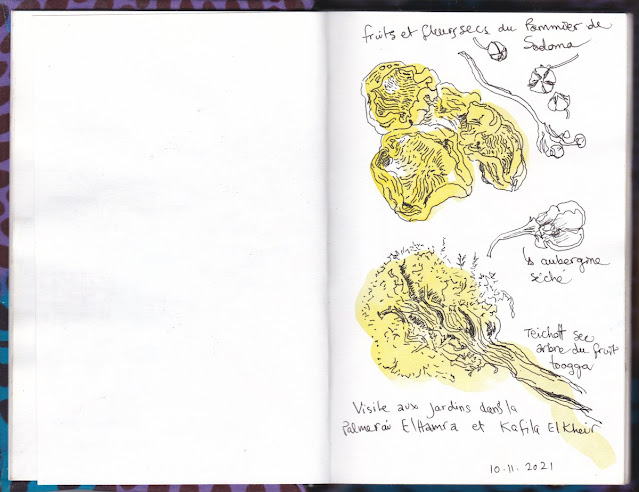 fruits et fleurs secs du Pommier de
Sodoma
↳ aubergine
séché
Teichott sec
arbre du fruit
toogga
Visite aux jardins dans la
Palmeraie El Hamra et Kafila El Kheir
10.11.2021